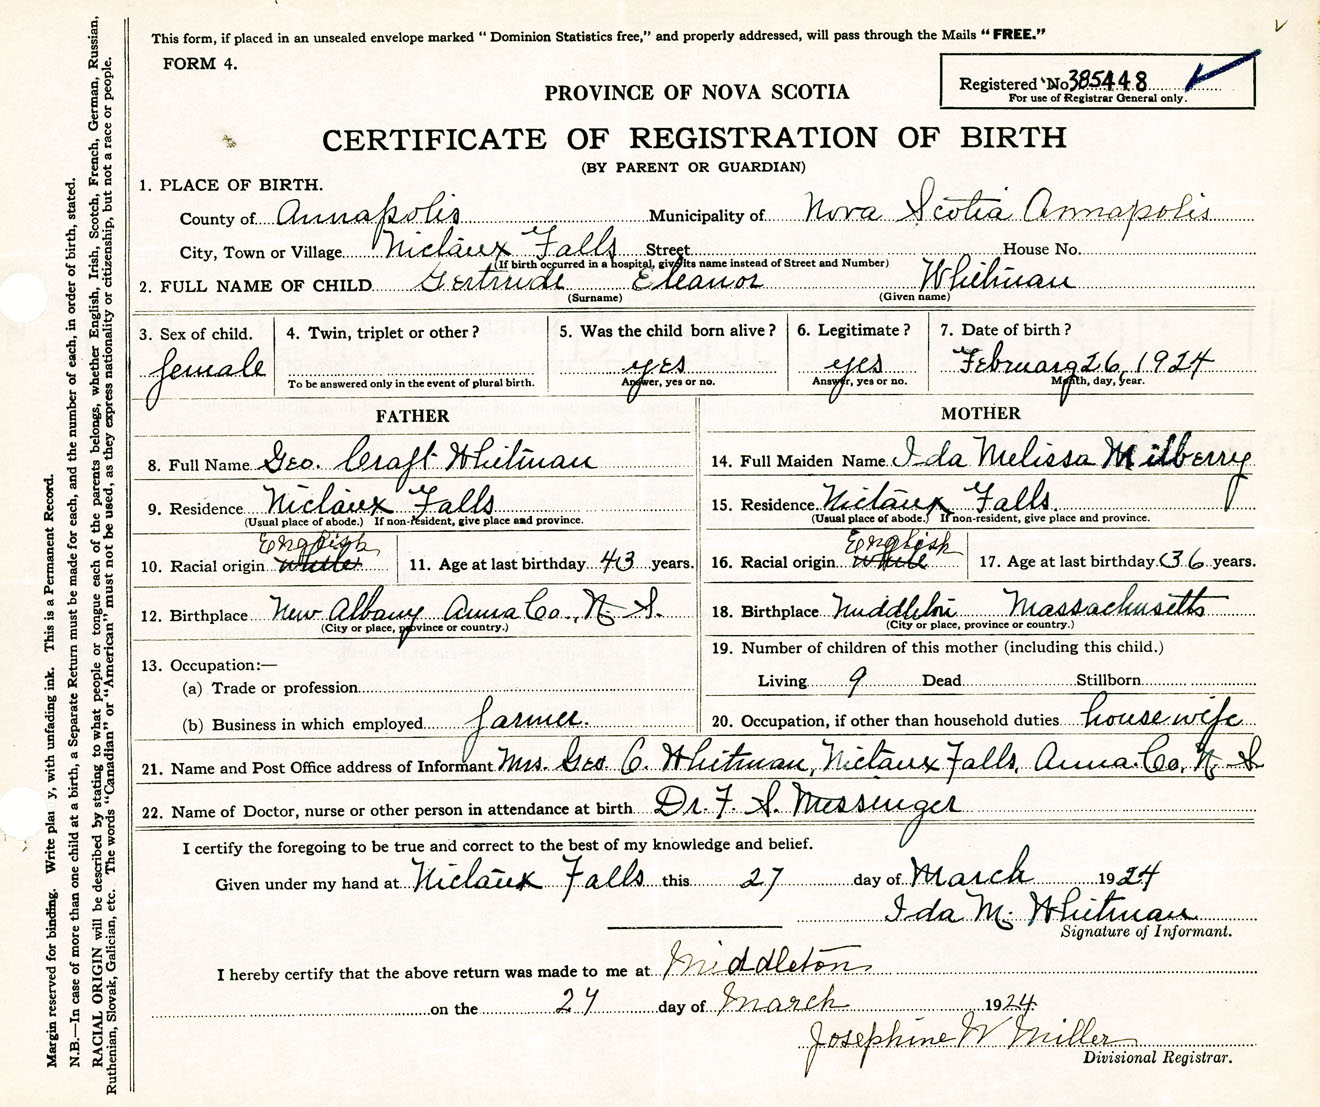 This form, if placed in an unsealed envelope marked “ Dominion Statistics free,” and properly addressed, will pass through the Mails “ FREE.”
FORM 4.
Registered No. 385448
For use of Registrar General only.
PROVINCE OF NOVA SCOTIA
CERTIFICATE OF REGISTRATION OF BIRTH
(BY PARENT OR GUARDIAN)
1. PLACE OF BIRTH.
County of Annapolis Municipality of Nova Scotia Annapolis
City, Town or Village Nictaux Falls Street House No.
(If birth occurred in a hospital, give its name instead of Street and Number)
2. FULL NAME OF CHILD Gertrude Eleanor Whitman
(Surname) (Given name)
3. Sex of child. 4. Twin, triplet or other? 5. Was the child born alive? 6. Legitimate? 7. Date of birth?
female yes yes February 26, 1924
To be answered only in the event of plural birth. Answer, yes or no. Answer, yes or no. Month, day, year.
FATHER MOTHER
8. Full Name Geo. Craft Whitman 14. Full Maiden Name Ida Melissa Milberry
9. Residence Nictaux Falls 15. Residence Nictaux Falls.
(Usual place of abode.) If non-resident, give place and province. (Usual place of abode.) If non-resident, give place and province.
English English
10. Racial origin White 11. Age at last birthday 43 years. 16. Racial origin White 17. Age at last birthday 36 years.
12. Birthplace New Albany Anna Co., N. S. 18. Birthplace Middleton Massachusetts
(City or place, province or country.) (City or place, province or country.)
13. Occupation:— 19. Number of children of this mother (including this child.)
(a) Trade or profession Living 9 Dead Stillborn
(b) Business in which employed farmer. 20. Occupation, if other than household duties housewife
21. Name and Post Office address of Informant Mrs. Geo. C. Whitman, Nictaux Falls, Anna. Co, N. S
22. Name of Doctor, nurse or other person in attendance at birth Dr. F. S. Messinger
I certify the foregoing to be true and correct to the best of my knowledge and belief.
Given under my hand at Nictaux Falls this 27 day of March 1924
Ida M. Whitman
Signature of Informant.
I hereby certify that the above return was made to me at Middleton
on the 27 day of March 1924.
Josephine W Miller
Divisional Registrar.
Margin reserved for binding. Write plai y, with unfading ink. This is a Permanent Record.
N.B.—In case of more than one child at a birth, a Separate Return must be made for each, and the number of each, in order of birth, stated.
RACIAL ORIGIN will be described by stating to what people or tongue each of the parents belongs, whether English, Irish, Scotch, French, German, Russian,
Ruthenian, Slovak, Galician, etc. The words “Canadian” or “American” must not be used, as they express nationality or citizenship, but not a race or people.